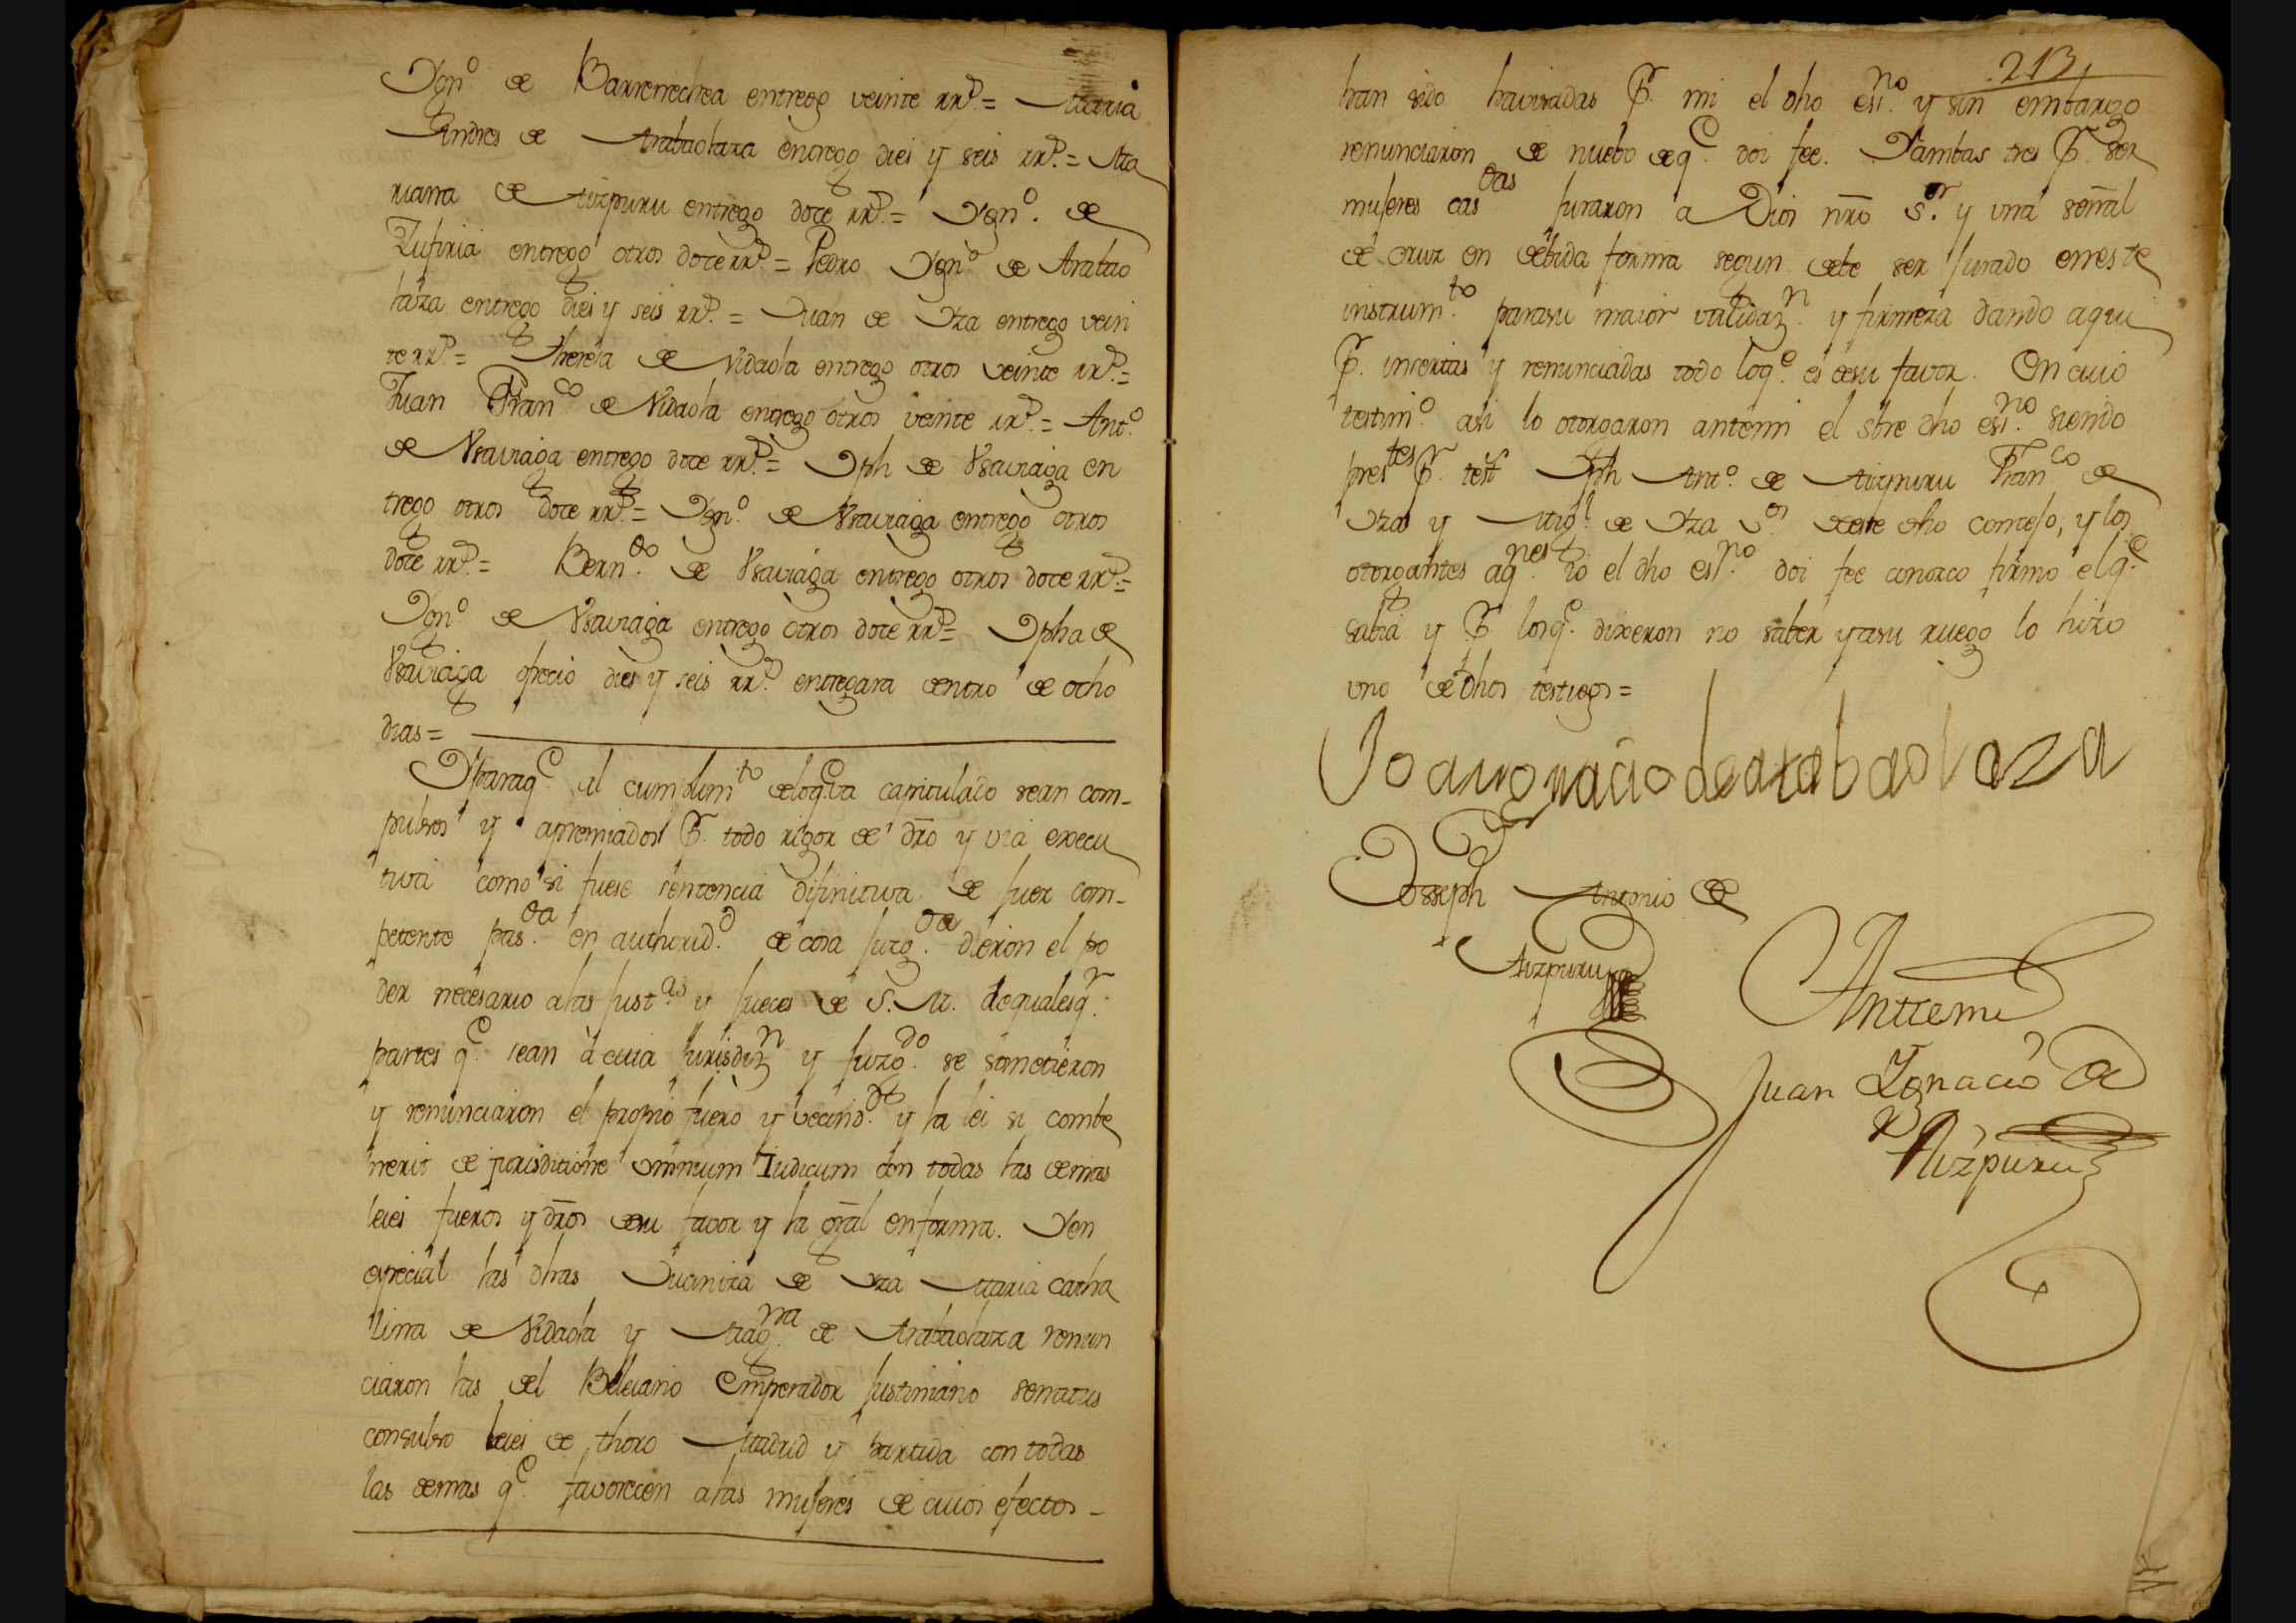 Ygnº de Barrenechea entregó veinte rrs.= Maria
Andres de Arabaolaza entregó diez y seis rrs.= Ma
riana de Aizpuru entregó doce rrs.= Ygnº. de
Zufiria entregó otros doce rrs.= Pedro Ygnº de Arabao
laza entregó diez y seis rrs.= Juan de Oza entregó vein
te rrs.= Theresa de Vidaola entregó otros veinte rrs.=
Juan Franco de Vidaola entregó otros veinte rrs.= Antº.
de Vsaviaga entregó doce rrs.= Jph de Vsaviaga en
tregó otros doce rrs.= Ygnº. de Vsaviaga entregó otros
doce rrs.= Berndo. de Vsaviaga entregó otros doce rrs.=
Ygnº de Vsaviaga entregó otros doce rrs= Jpha de
Vsaviaga ofreció diez y seis rrs. entregara dentro de ocho
dias=
Yparaqe. al cumplimto deloqe.va capitulado sean com-
pulsos y apremiados Pr. todo rigor de dro y via execu
tiva como si fuese sentencia difinitiva de juez com-
petente pasda. en authoridd. de cosa juzgda. dieron el po
der necesario alas justas. y jueces de S. M. dequalesqr.
partes qe. sean à cuia jurisdizn y juzgdo. se sometieron
y renunciaron el propio fuero y vecindd. y la lei si combe
nerit de jurisditione omnium Iudicum con todas las demas
leies fueros y dros desu favor y la gral enforma. Yen
especial las dhas Juaniza de Oza Maria Catha
lina de Vidaola y Magna. de Arabaolaza renun
ciaron las del Beleiano Emperador Justiniano senatus
consulto leies de thoro Madrid y partida con todas
las demas qe. favorecen alas mujeres de cuios efectos -
213
han sido havisadas Pr. mi el dho esno. y sin embargo
renunciaron de nuebo deqe. doi fee. Yambas tres Pr. ser
mujeres casdas juraron a Dios nro Sr. y vna señal
de cruz en debida forma segun debe ser jurado eneste
instrumto. parasu maior validazn. y firmeza dando aqui
Pr. incertas y renunciadas todo loqe. es desu favor. En cuio
testimº. asi lo otorgaron antemi el sbre dho esno. siendo
prestes Pr. testgs Jph Antº. de Aizpuru Franco. de
Oza y Migl. de Oza vos. deeste dho concejo, y los
otorgantes aqnes. io el dho esno. doi fee conozco firmó elqe.
sabia y Pr. losqe. dixeron no saber yasu ruego lo hizo
uno de dhos testigos=
Joanygnaciodearabaolaza
Josseph Antonio de
Aizpuru
Anttemi
Juan Ygnacio de
Aizpuru